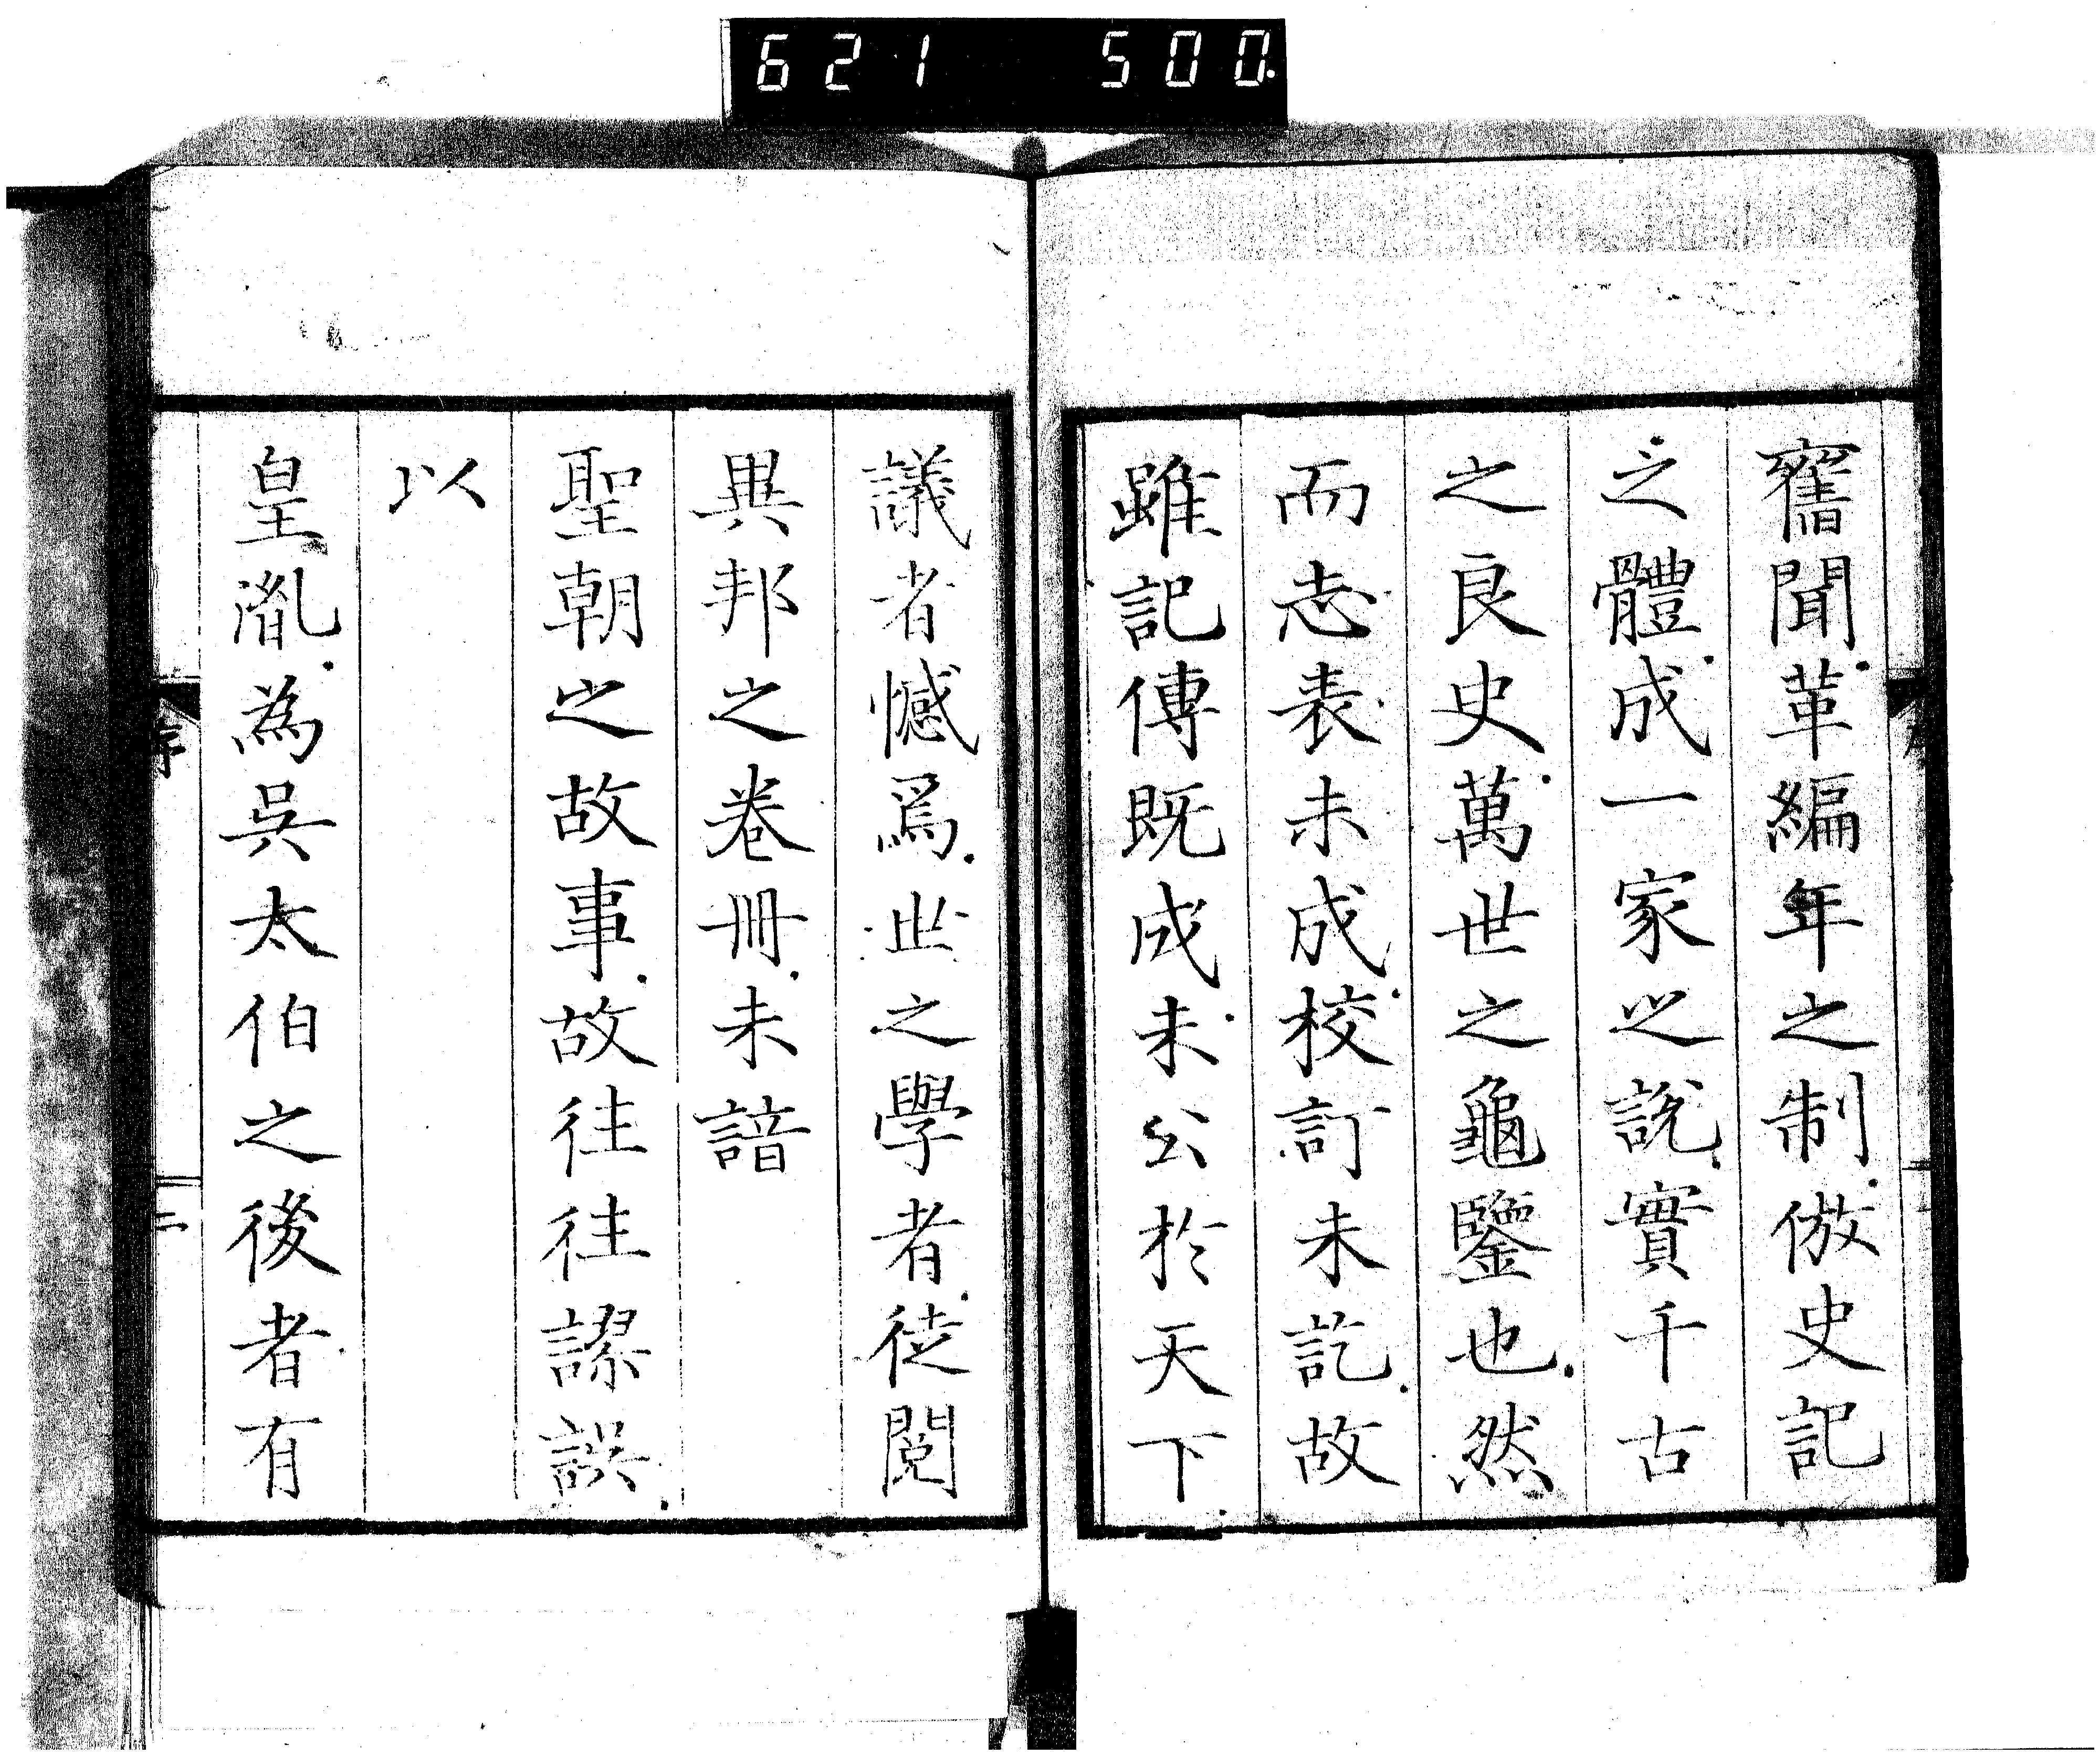 621 500.
舊聞革編年之制倣史記
之體成一家之説實千古
之良史萬世之龜鑒也然
而志表未成校訂未訖故
雖記傳既成未公於天下
議者憾焉世之學者徒閲
異邦之卷冊未諳
聖朝之故事故往往謬誤
以
皇胤為吳太伯之後者有
序
二